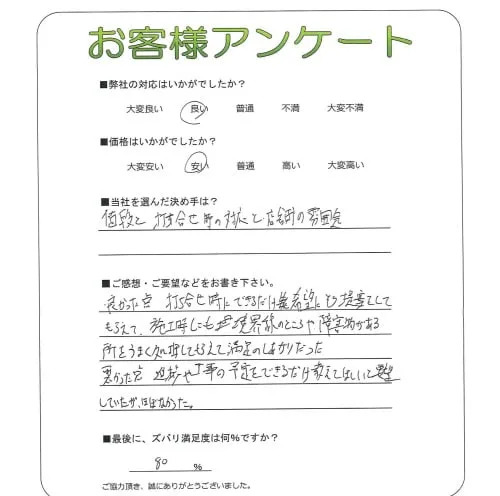 お客様アンケート
■弊社の対応はいかがでしたか？
大変良い 良い 普通 不満 大変不満
■価格はいかがでしたか？
大変安い 安い 普通 高い 大変高い
■当社を選んだ決め手は？
価段と 打合せ時の対応と店舗の雰囲気
■ご感想・ご要望などをお書き下さい。
良かった点 打ち合せ時にできるだけ希望にそう提案をして
もらえて、施工時にも境界線のところや障害物がある
所をうまく処理してもらえて満足のしあがりだった
悪かった点 進捗や工事の予定をできるだけ教えてほしいと
していたが、ほぼなかった。
■最後に、ズバリ満足度は何％ですか？
80 ％
ご協力頂き、誠にありがとうございました。